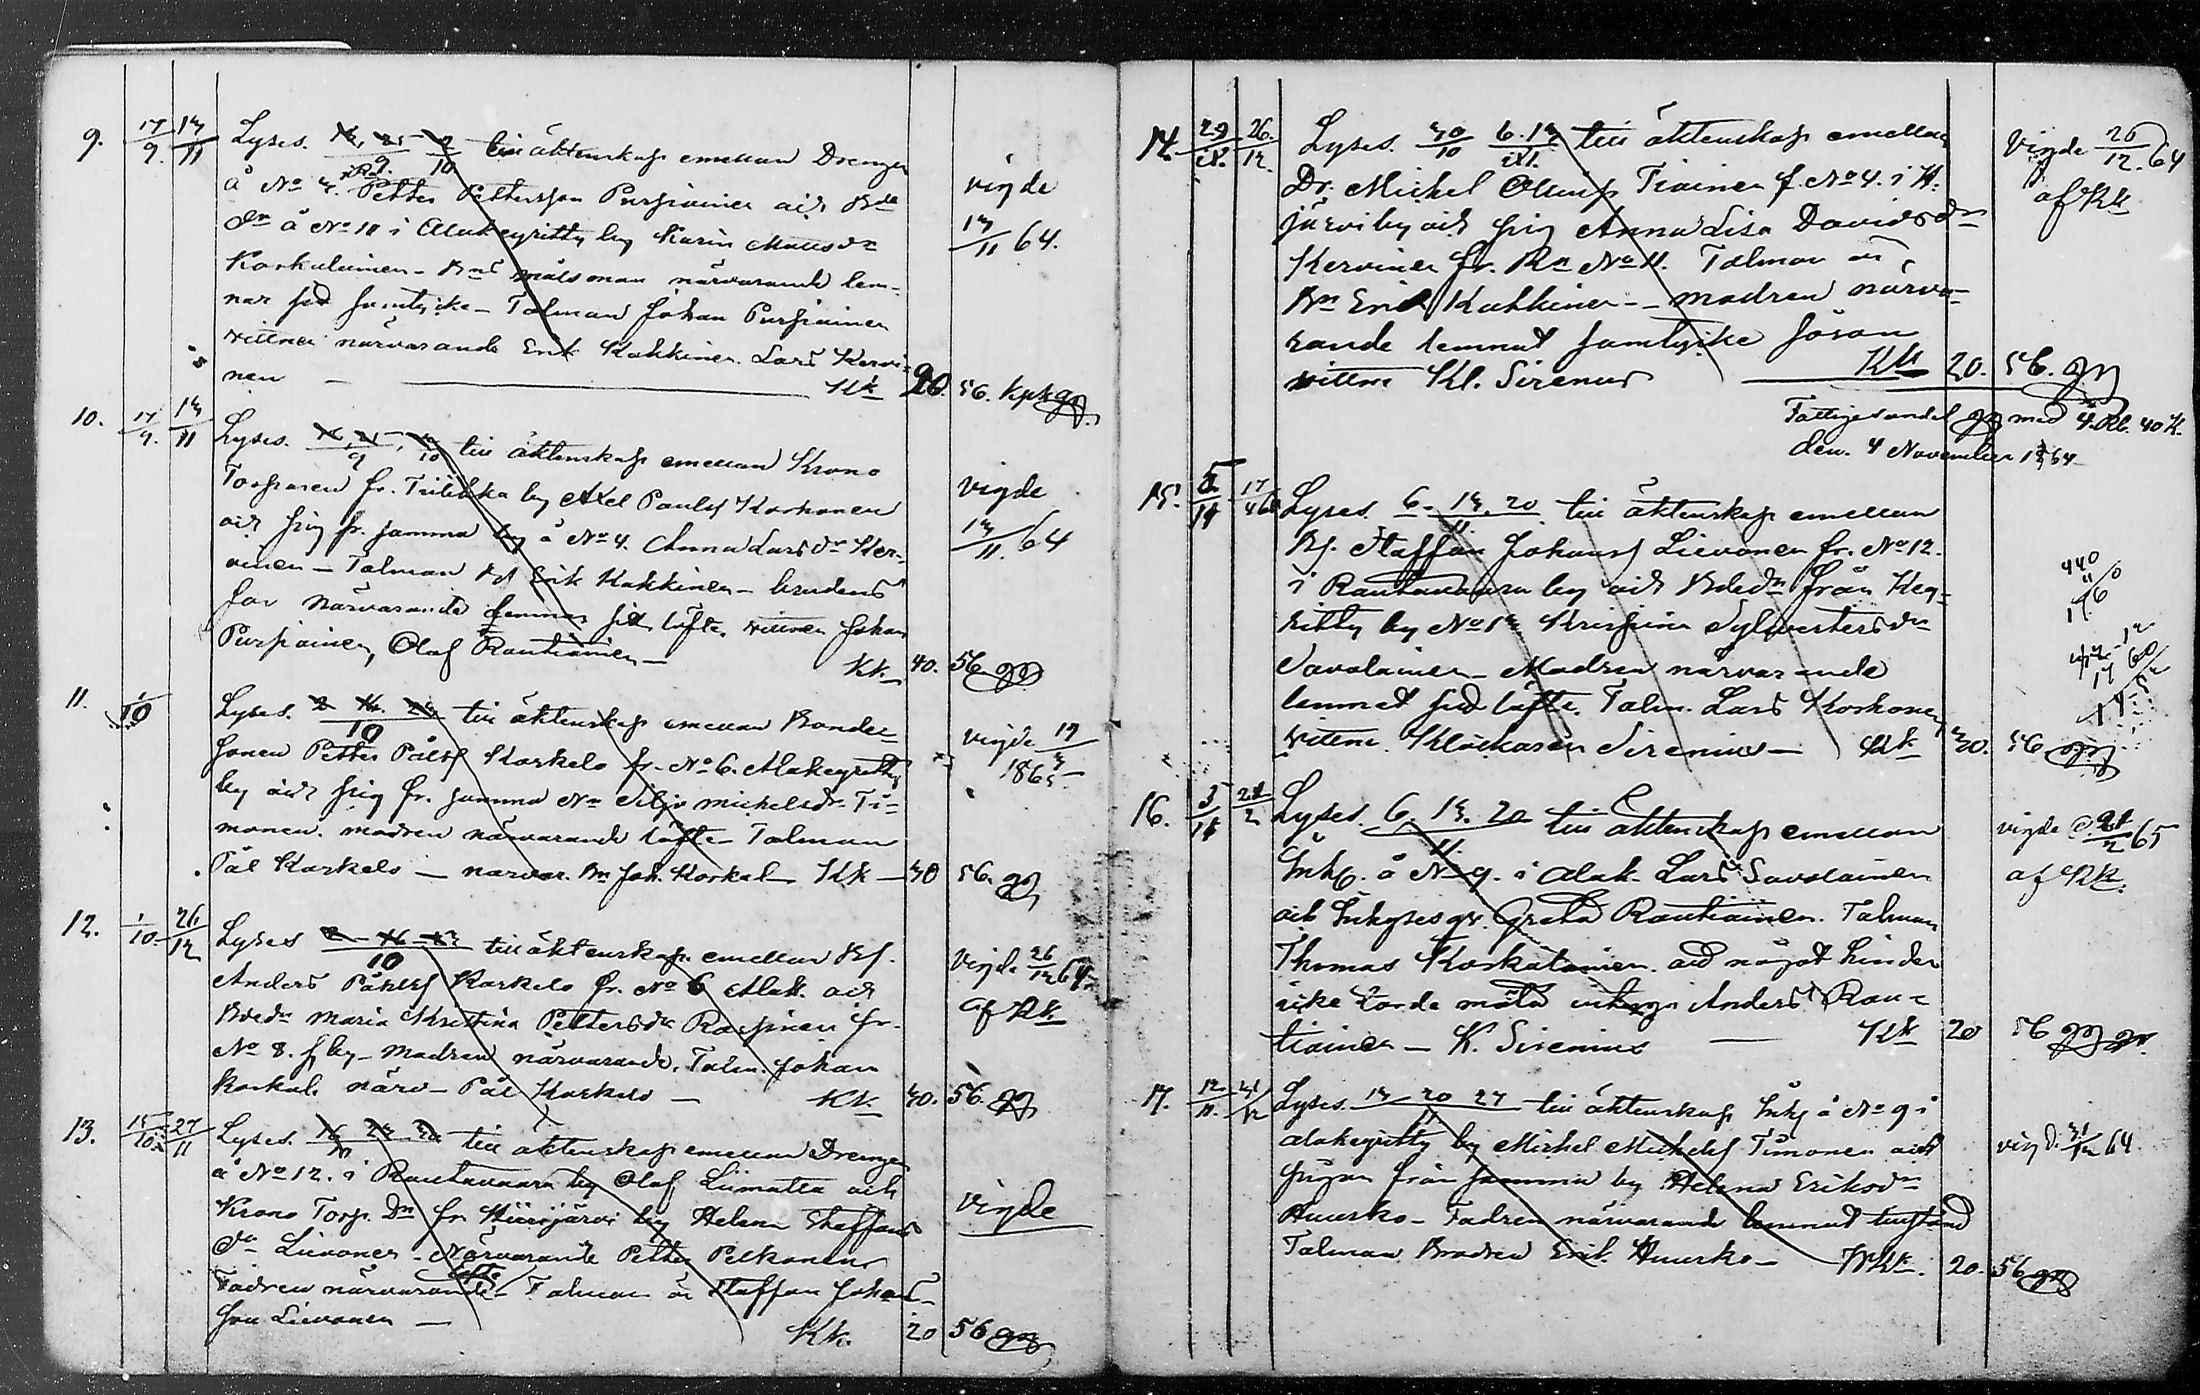 9. 17/9. 13/11 Lyses. 18, 25/9. 2/10 till äktenskap emellan Drengen
å No 4. Petter Pettersson Purpiainen och Bde
dn å No 11 i Alakeyritty by Karin Mattsdr
Korkalainen - målsman närvarande lem-
nar sed samtycke - Talman Johan Purpiainen
vittnen närvarande Erik Kokkinen. Lars Kervi-
nen — Kk 20. 56. kpk
vigde
13/11 64.
10. 17/9. 13/11 Lyses. till äktenskap emellan Krono
Torparen fr. by Axel Paulsf Korhonen
och pig fr. samma by å No 4. Anna Larsdr Ker-
vinen - Talman Erik Kokkinen - brudens
far närvarande löfte, vittnen Johan
Purpiainen, Olof Rautiainen —
Kk. 40. 56
vigde
13/11. 64
11. 1/10 Lyses. till äktenskap emellan Bonde-
sonen Petter Pålsf Korkalo fr. No 6. Alakeyritty
by och pig fr. samma No Silja Michelsdr Ti-
monen. modren närvarande löfte - Talman
Pål Korkalo — närvar. Bn Joh. Korkal. Kk — 40 56.
vigde 19/3
1865 —
12. 1/10. 26/12 Lyses 10 till äktenskap emellan Bf.
Anders Påhlsf Korkalo fr. No 6 Alak. och
Bdedr Maria Kristina Pettersdr fr.
No 8. by - Modren närvarande. Talm. Johan
Korkal. närv - Pål Korkalo — Kk. 40. 56.
Vigde 26/12 64.
af Kk
13. 15/10 27/11 Lyses. till äktenskap emellan Drengen
å No 12. i Rautavaara by Olof Liimatta och
Krono Torp. Dr fr. by Helena Staffans
dr Lievonen - Närvarande Petter Pelkonen
Fadren närvarande löfte - Talman är Staffan Johans-
son Lievonen — Kk. 20 56
Vigde
14. 29/ 26./12. Lyses. 30/10 6. 13 till äktenskap emellan
Dr. Michel Olaus Tiainen f. No 4. i
järvi by och pig Anna Lisa Davidsdr
Kervinen fr. No 11. Talman är
Bn Erik Kokkinen — modren närva-
rande lemnat samtycke
vittne Kl. Sirenius — Kk 20. 56.
Vigde 26/12. 64
af Kk
Fattigas andel med 4. Rb. 40 K.
den. 4 November 1864
15. 5/11 17/4 Lyses. 6. 13. 20/11. till äktenskap emellan
Bf. Staffan Johansf Lievonen fr. No 12.
i Rautavaara by och Bdedr från Key-
ritty by No 13 Krispina Sylvestersdr
Savolainen - Modren närvarande
lemnat sed löfte. Talm. Lars Korhonen,
vittne. Klockaren Sirenius — Kk 40. 56
440
16. 5/11 Lyses. 6. 13. 20/11. till äktenskap emellan
Inhy. å No 9. i Alak. Lars Savolainen
och Inhyses Greta Rautiainen. Talman
Thomas Korkalainen. och något hinder
icke torde möta intygar Anders Rau-
tiainen — K. Sirenius — Kk 20 56
vigde 65
af Kk.
17. 12/11. Lyses. 13 20 27/11 till äktenskap Inhy å No 9 i
Alakeyritty by Michel Michelsf Timonen och
pigan från samma by Helena Eriksdr
Huurko - Fadren närvarande lemnat tillstånd
Talman Brodren Erik Huurko — Kk. 20. 56
vigd. 31/12 64.